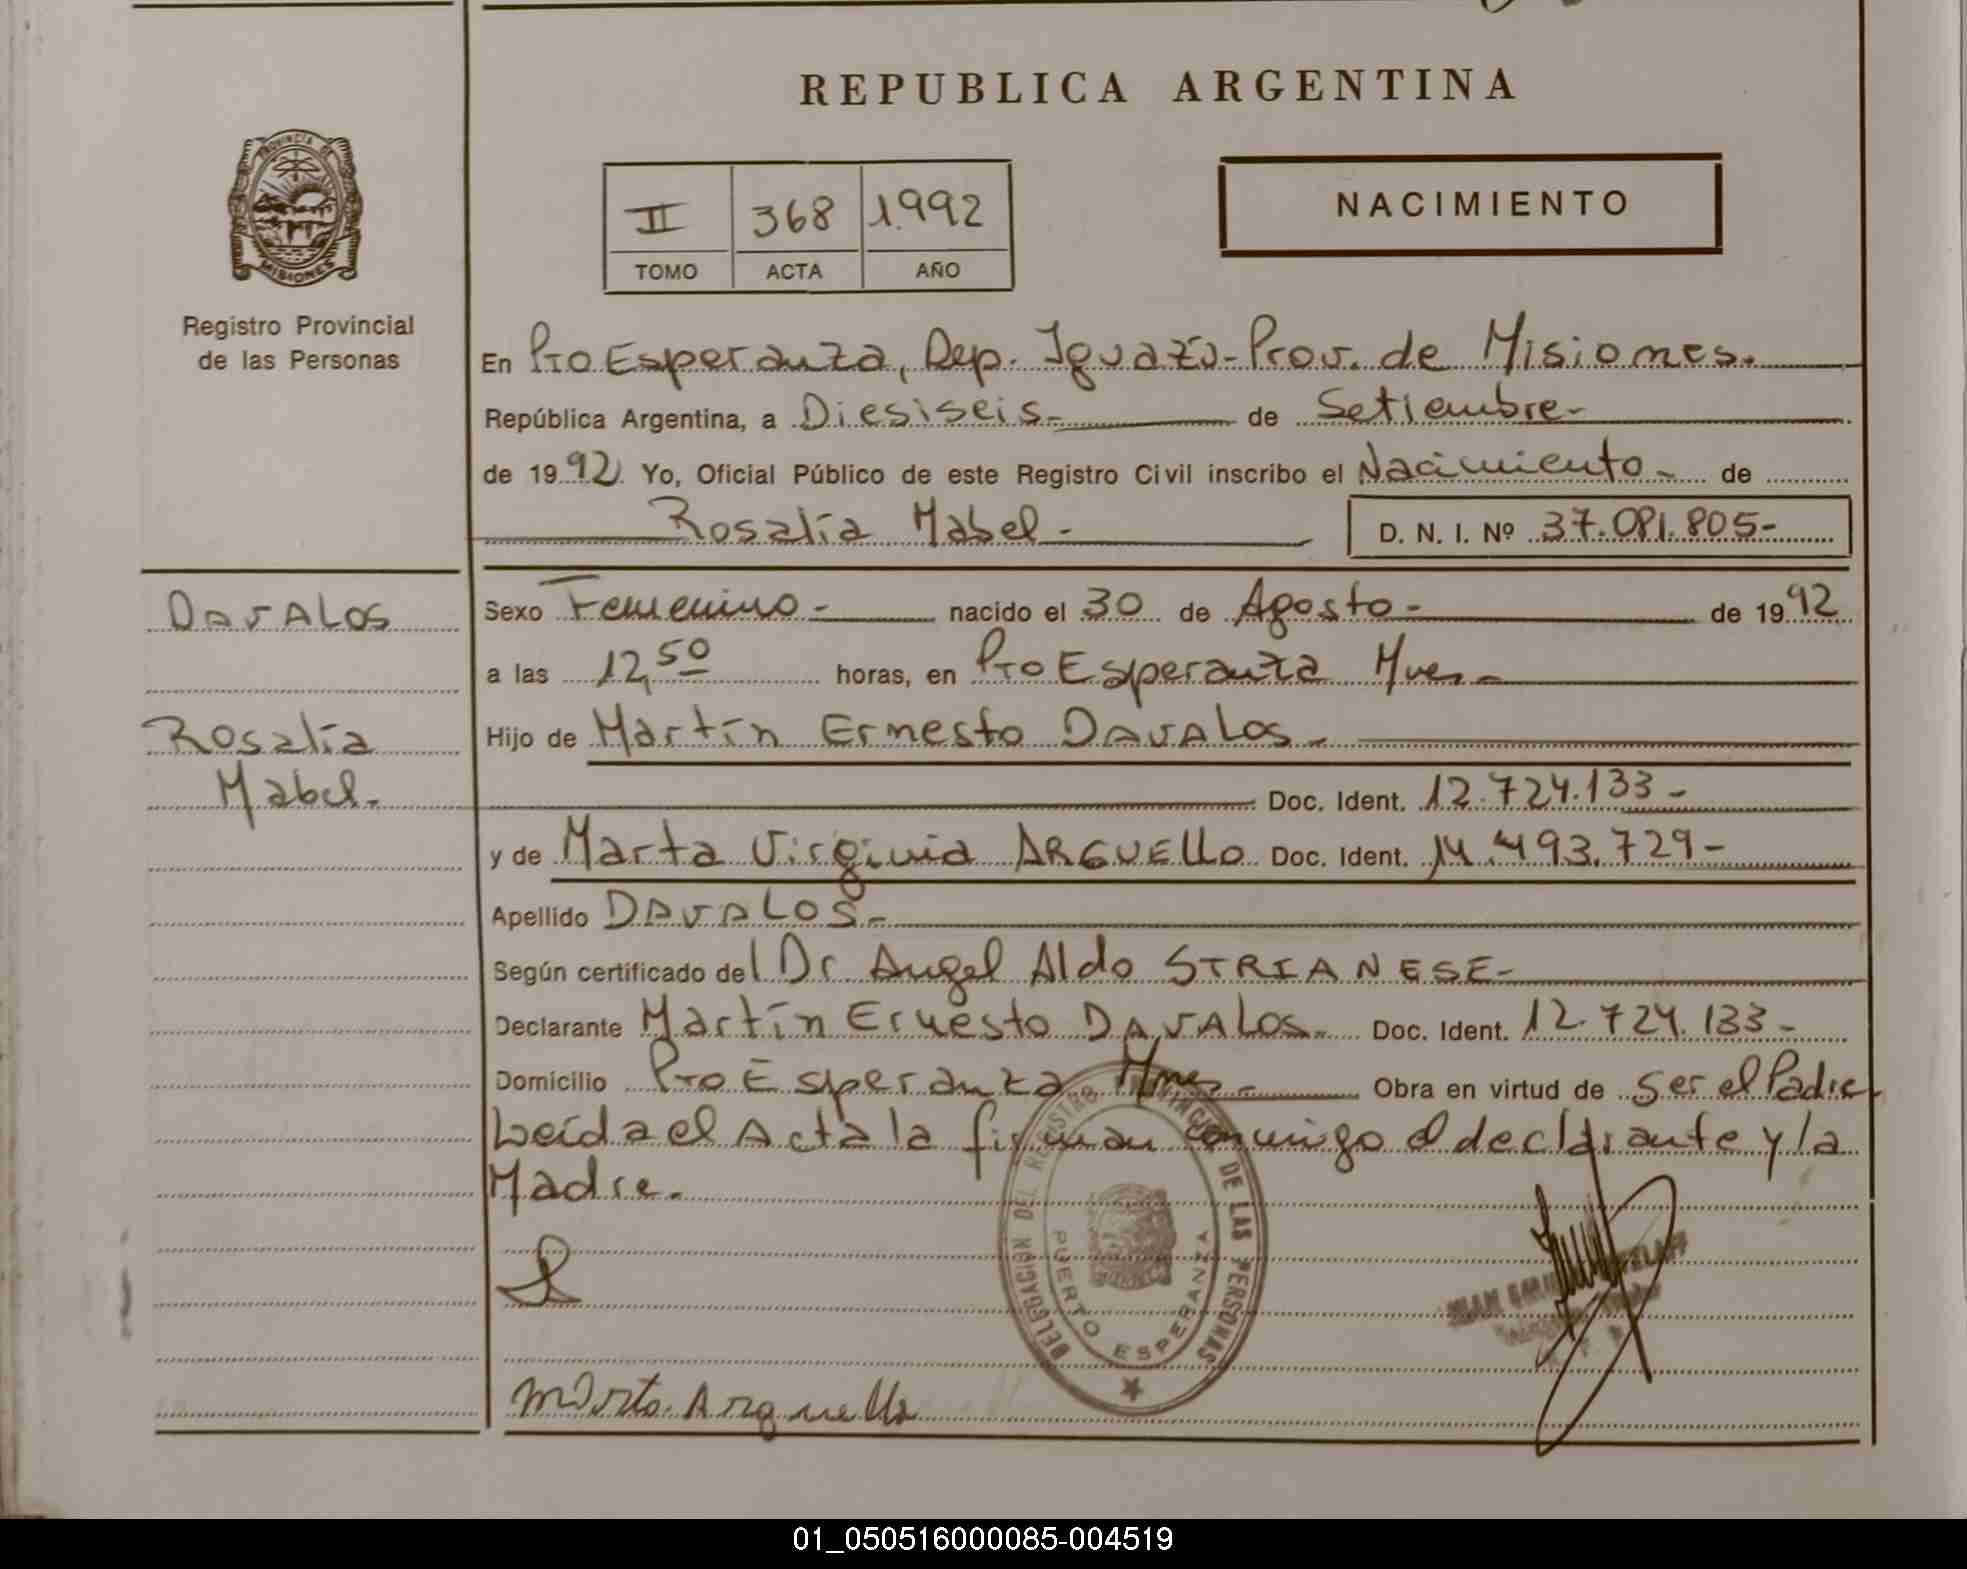 REPUBLICA ARGENTINA
PROVINCIA DE
MISIONES
Registro Provincial
de las Personas
II 368 1.992
TOMO ACTA AÑO
NACIMIENTO
En Pto Esperanza, Dep. Iguazú-Prov. de Misiones.
República Argentina, a Diesiseis- de Setiembre-
de 1992. Yo, Oficial Público de este Registro Civil inscribo el Nacimiento- de
Rosalía Mabel-
D. N. I. Nº 37.081.805-
DAVALOS
Rosalía
Mabel.
Sexo Femenino- nacido el 30 de Agosto- de 1992
a las 12,50 horas, en Pto Esperanza Mnes-
Hijo de Martín Ernesto DAVALOS-
Doc. Ident. 12.724.133-
y de Marta Virginia ARGUELLO Doc. Ident. 14.493.729-
Apellido DAVALOS-
Según certificado del Dr Angel Aldo STRIANESE-
Declarante Martín Ernesto DAVALOS- Doc. Ident. 12.724.133-
Domicilio Pto Esperanza Mnes- Obra en virtud de Ser el Padre
Leída el Acta la firman conmigo el declarante y la
Madre.
DELEGACION DEL REGISTRO PROVINCIAL DE LAS PERSONAS
PUERTO ESPERANZA
Marta Arguello
01_050516000085-004519